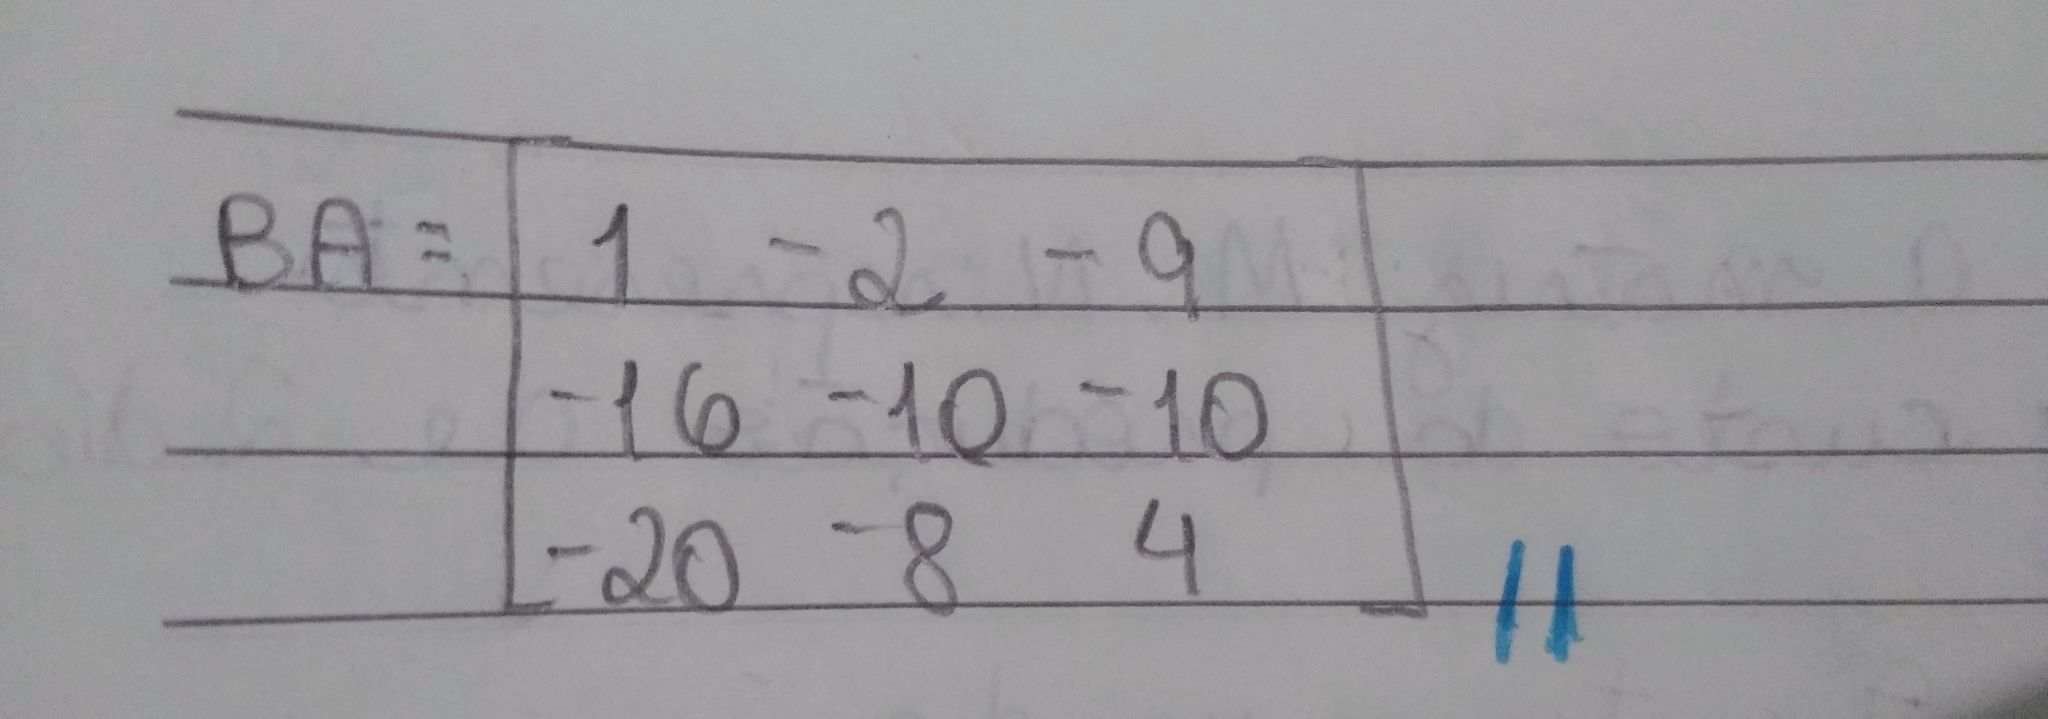 BA = 1 -2 -9
-16 -10 -10
-20 -8 4